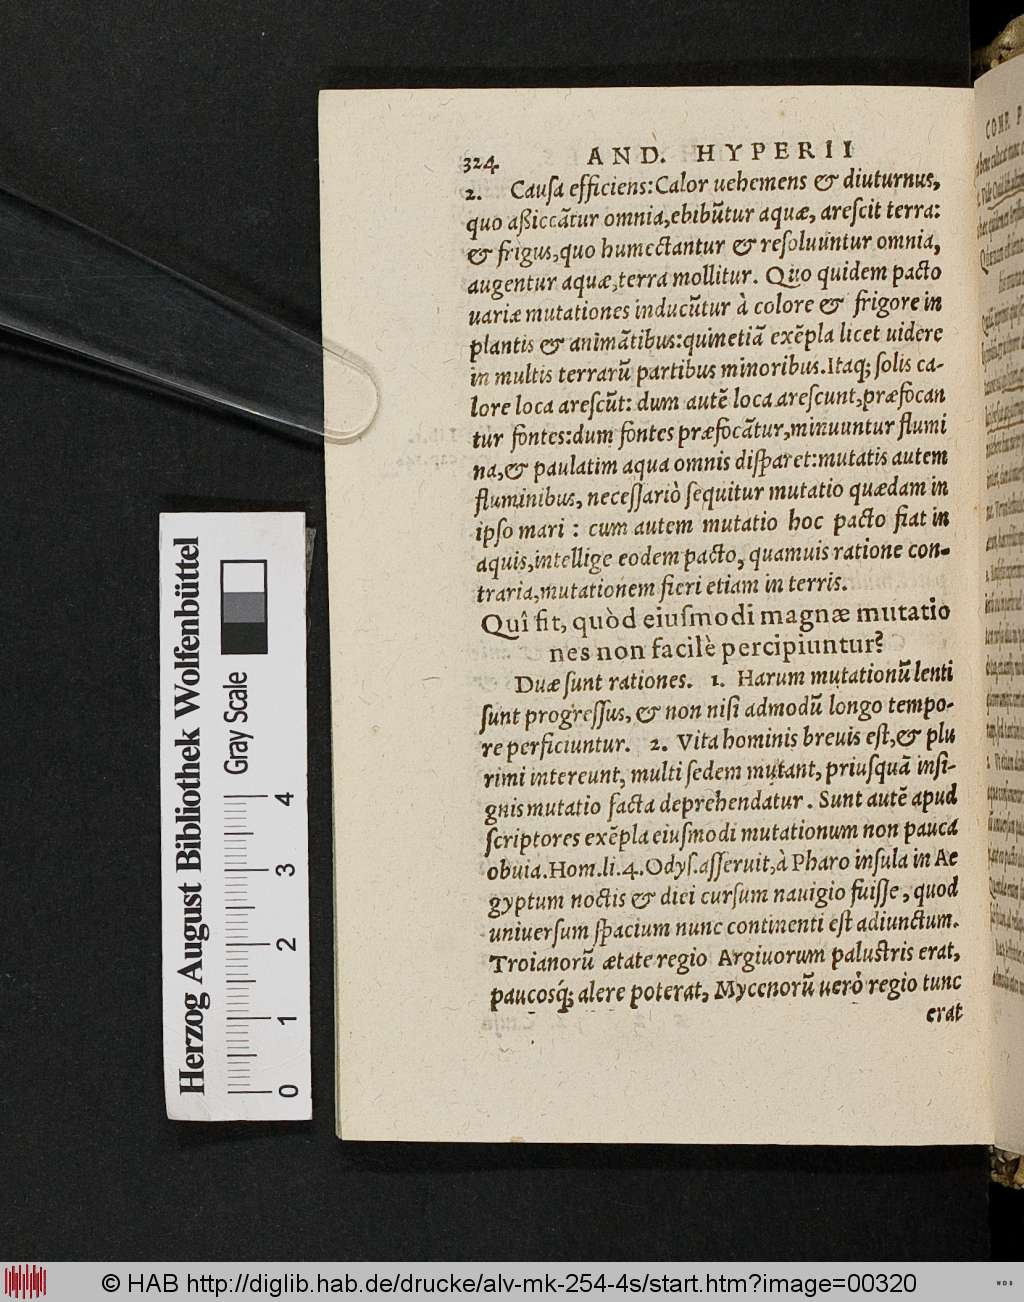 324 AND. HYPERII
2. Cauſa efficiens: Calor uehemens & diuturnus,
quo aßiccãtur omnia, ebibũtur aquæ, areſcit terra:
& frigus, quo humectantur & reſoluuntur omnia,
augentur aquæ, terra mollitur. Quo quidem pacto
uariæ mutationes inducũtur à colore & frigore in
plantis & animãtibus: quinetiã exẽpla licet uidere
in multis terrarũ partibus minoribus. Itaq; ſolis ca-
lore loca areſcũt: dum autẽ loca areſcunt, præfocan
tur fontes: dum fontes præfocãtur, minuuntur flumi
na, & paulatim aqua omnis diſparet: mutatis autem
fluminibus, neceſſariò ſequitur mutatio quædam in
ipſo mari: cum autem mutatio hoc pacto fiat in
aquis, intellige eodem pacto, quamuis ratione con-
traria, mutationem fieri etiam in terris.
Quî fit, quòd eiuſmodi magnæ mutatio
nes non facilè percipiuntur?
Duæ ſunt rationes. 1. Harum mutationũ lenti
ſunt progreſſus, & non niſi admodũ longo tempo-
re perficiuntur. 2. Vita hominis breuis eſt, & plu
rimi intereunt, multi ſedem mutant, priuſquã inſi-
gnis mutatio facta deprehendatur. Sunt autẽ apud
ſcriptores exẽpla eiuſmodi mutationum non pauca
obuia. Hom. li. 4. Odyſ. aſſeruit, à Pharo inſula in Ae
gyptum noctis & diei curſum nauigio fuiſſe, quod
uniuerſum ſpacium nunc continenti eſt adiunctum.
Troianorũ ætate regio Argiuorum paluſtris erat,
paucosq́; alere poterat, Mycenorũ uerò regio tunc
erat
Herzog August Bibliothek Wolfenbüttel
Gray Scale
0 1 2 3 4
© HAB http://diglib.hab.de/drucke/alv-mk-254-4s/start.htm?image=00320